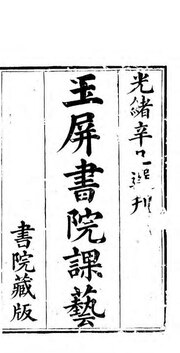 光緒辛巳選刊
玉屏書院課藝
書院藏版